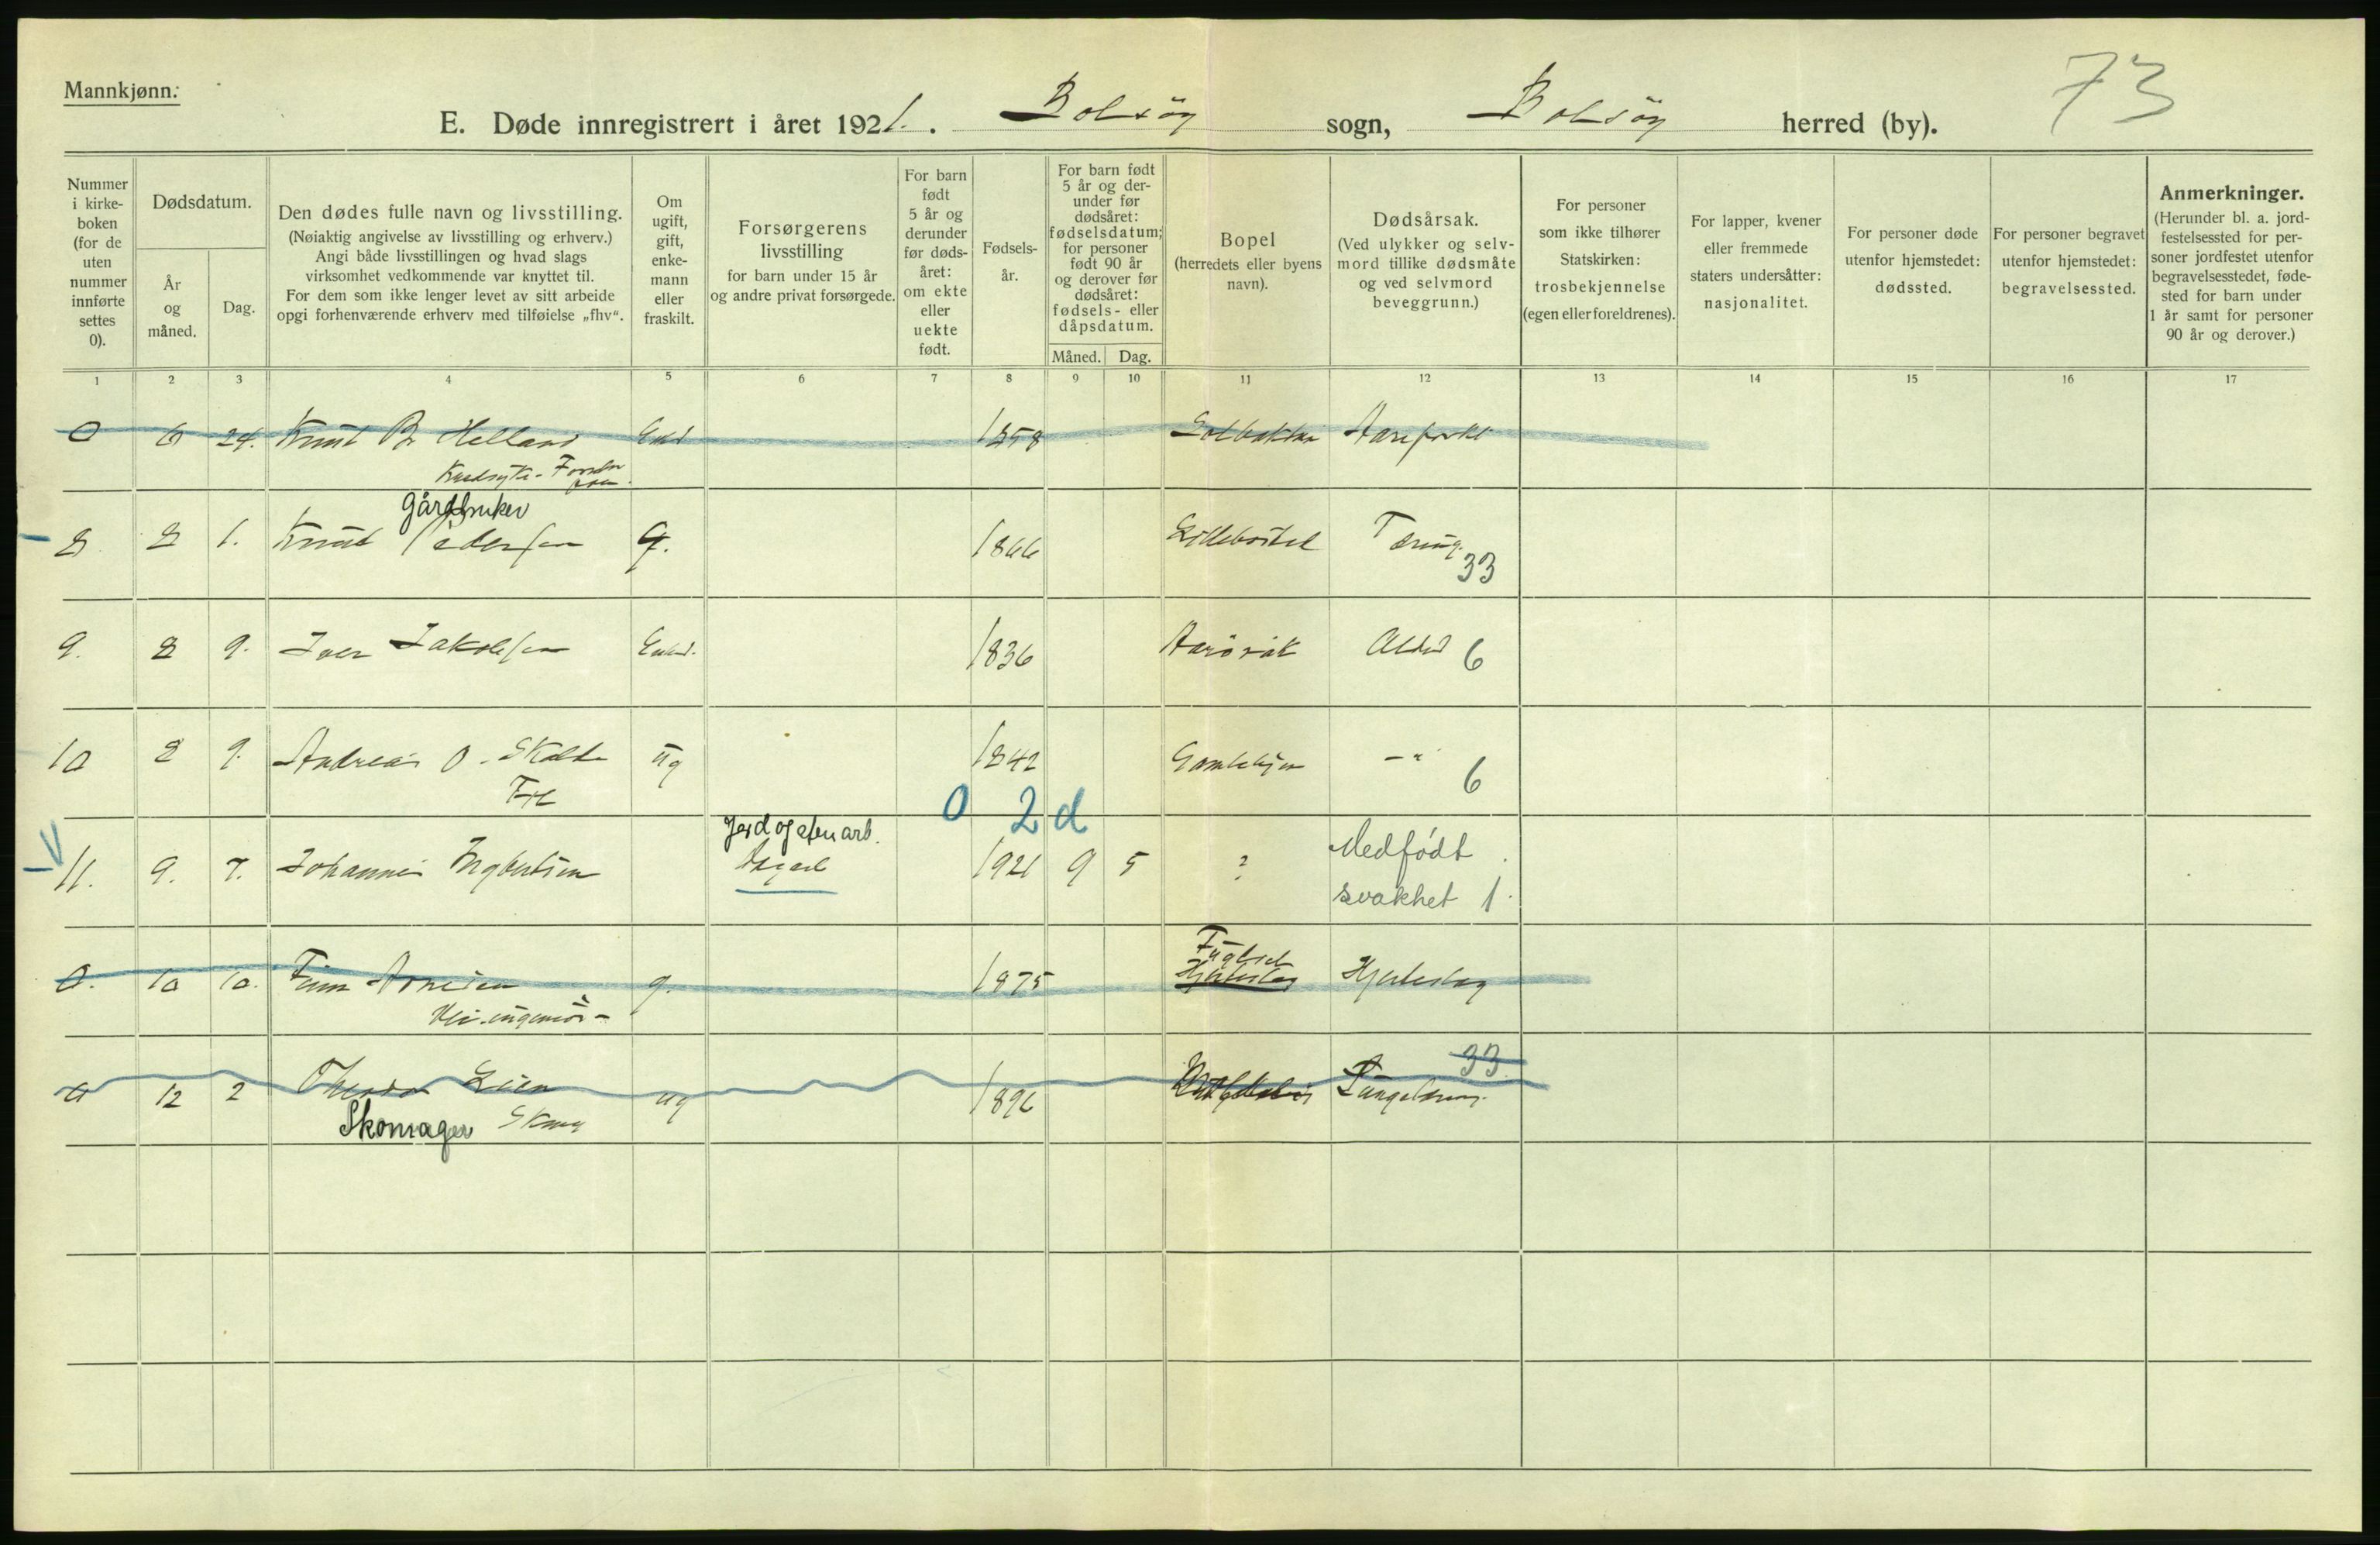 Mannkjønn:
E. Døde innregistrert i året 1921. Bolsöy sogn, Bolsöy herred (by).
73
Nummer i kirkeboken (for de uten nummer innførte settes 0).
Dødsdatum.
År og måned.
Dag.
Den dødes fulle navn og livsstilling.
(Nøiaktig angivelse av livsstilling og erhverv.)
Angi både livsstillingen og hvad slags
virksomhet vedkommende var knyttet til.
For dem som ikke lenger levet av sitt arbeide
opgi forhenværende erhverv med tilføielse „fhv“.
Om ugift, gift, enkemann eller fraskilt.
Forsørgerens livsstilling
for barn under 15 år
og andre privat forsørgede.
For barn født 5 år og derunder før dødsåret: om ekte eller uekte født.
Fødselsår.
For barn født 5 år og derunder før dødsåret: fødselsdatum; for personer født 90 år og derover før dødsåret: fødsels- eller dåpsdatum.
Måned. Dag.
Bopel
(herredets eller byens navn).
Dødsårsak.
(Ved ulykker og selvmord tillike dødsmåte og ved selvmord beveggrunn.)
For personer som ikke tilhører Statskirken: trosbekjennelse (egen eller foreldrenes).
For lapper, kvener eller fremmede staters undersåtter: nasjonalitet.
For personer døde utenfor hjemstedet: dødssted.
For personer begravet utenfor hjemstedet: begravelsessted.
Anmerkninger.
(Herunder bl. a. jordfestelsessted for personer jordfestet utenfor begravelsesstedet, fødested for barn under 1 år samt for personer 90 år og derover.)
1 2 3 4 5 6 7 8 9 10 11 12 13 14 15 16 17
0 6 24. Knut Helland 1858
Gårdbruker
8 8 1. Knut Pedersen g. 1866 Lillebostad Tæring.
33
9. 8 9. Iver Jakobsen 1836 Aarövik 6
10 8 9. Andreas O. ug 1842 -"-
6
0 2 d
11. 9. 7. Johannes 1921 9 5 ? Medfødt
svakhet 1
0. 10 10. Finn g. 1875 Fuglset Hjerteslag
Vei-ingeniör
33
0 12 2 Lien ug 1896
Skomager